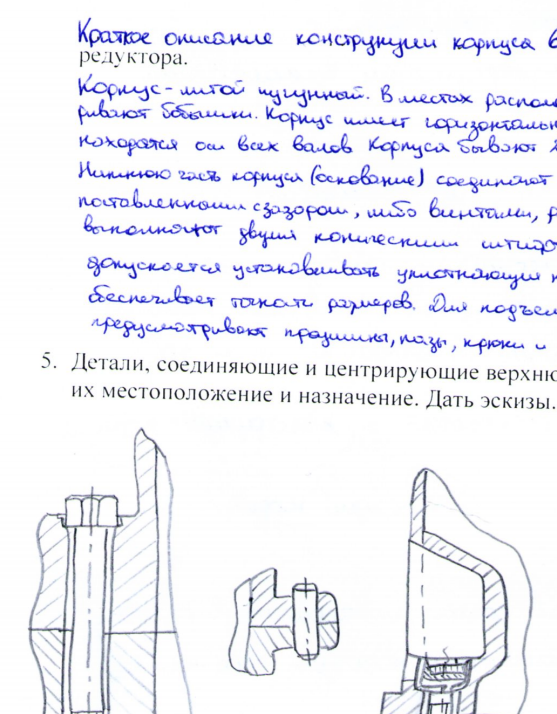 Краткое описание конструкции корпуса в
редуктора.
Корпус - литой чугунный. В местах располо
ривают бобышки. Корпус имеет горизонтальн
находятся оси всех валов Корпуса бывают
Нижнюю часть корпуса (основание) соединяют
поставленными с зазором, либо винтами, р
выполняют двумя коническими штиф
допускается устанавливать уплотняющие п
обеспечивает точность размеров. Для подъем
предусматривают проушины, пазы, крюки и
5. Детали, соединяющие и центрирующие верхню
их местоположение и назначение. Дать эскизы.